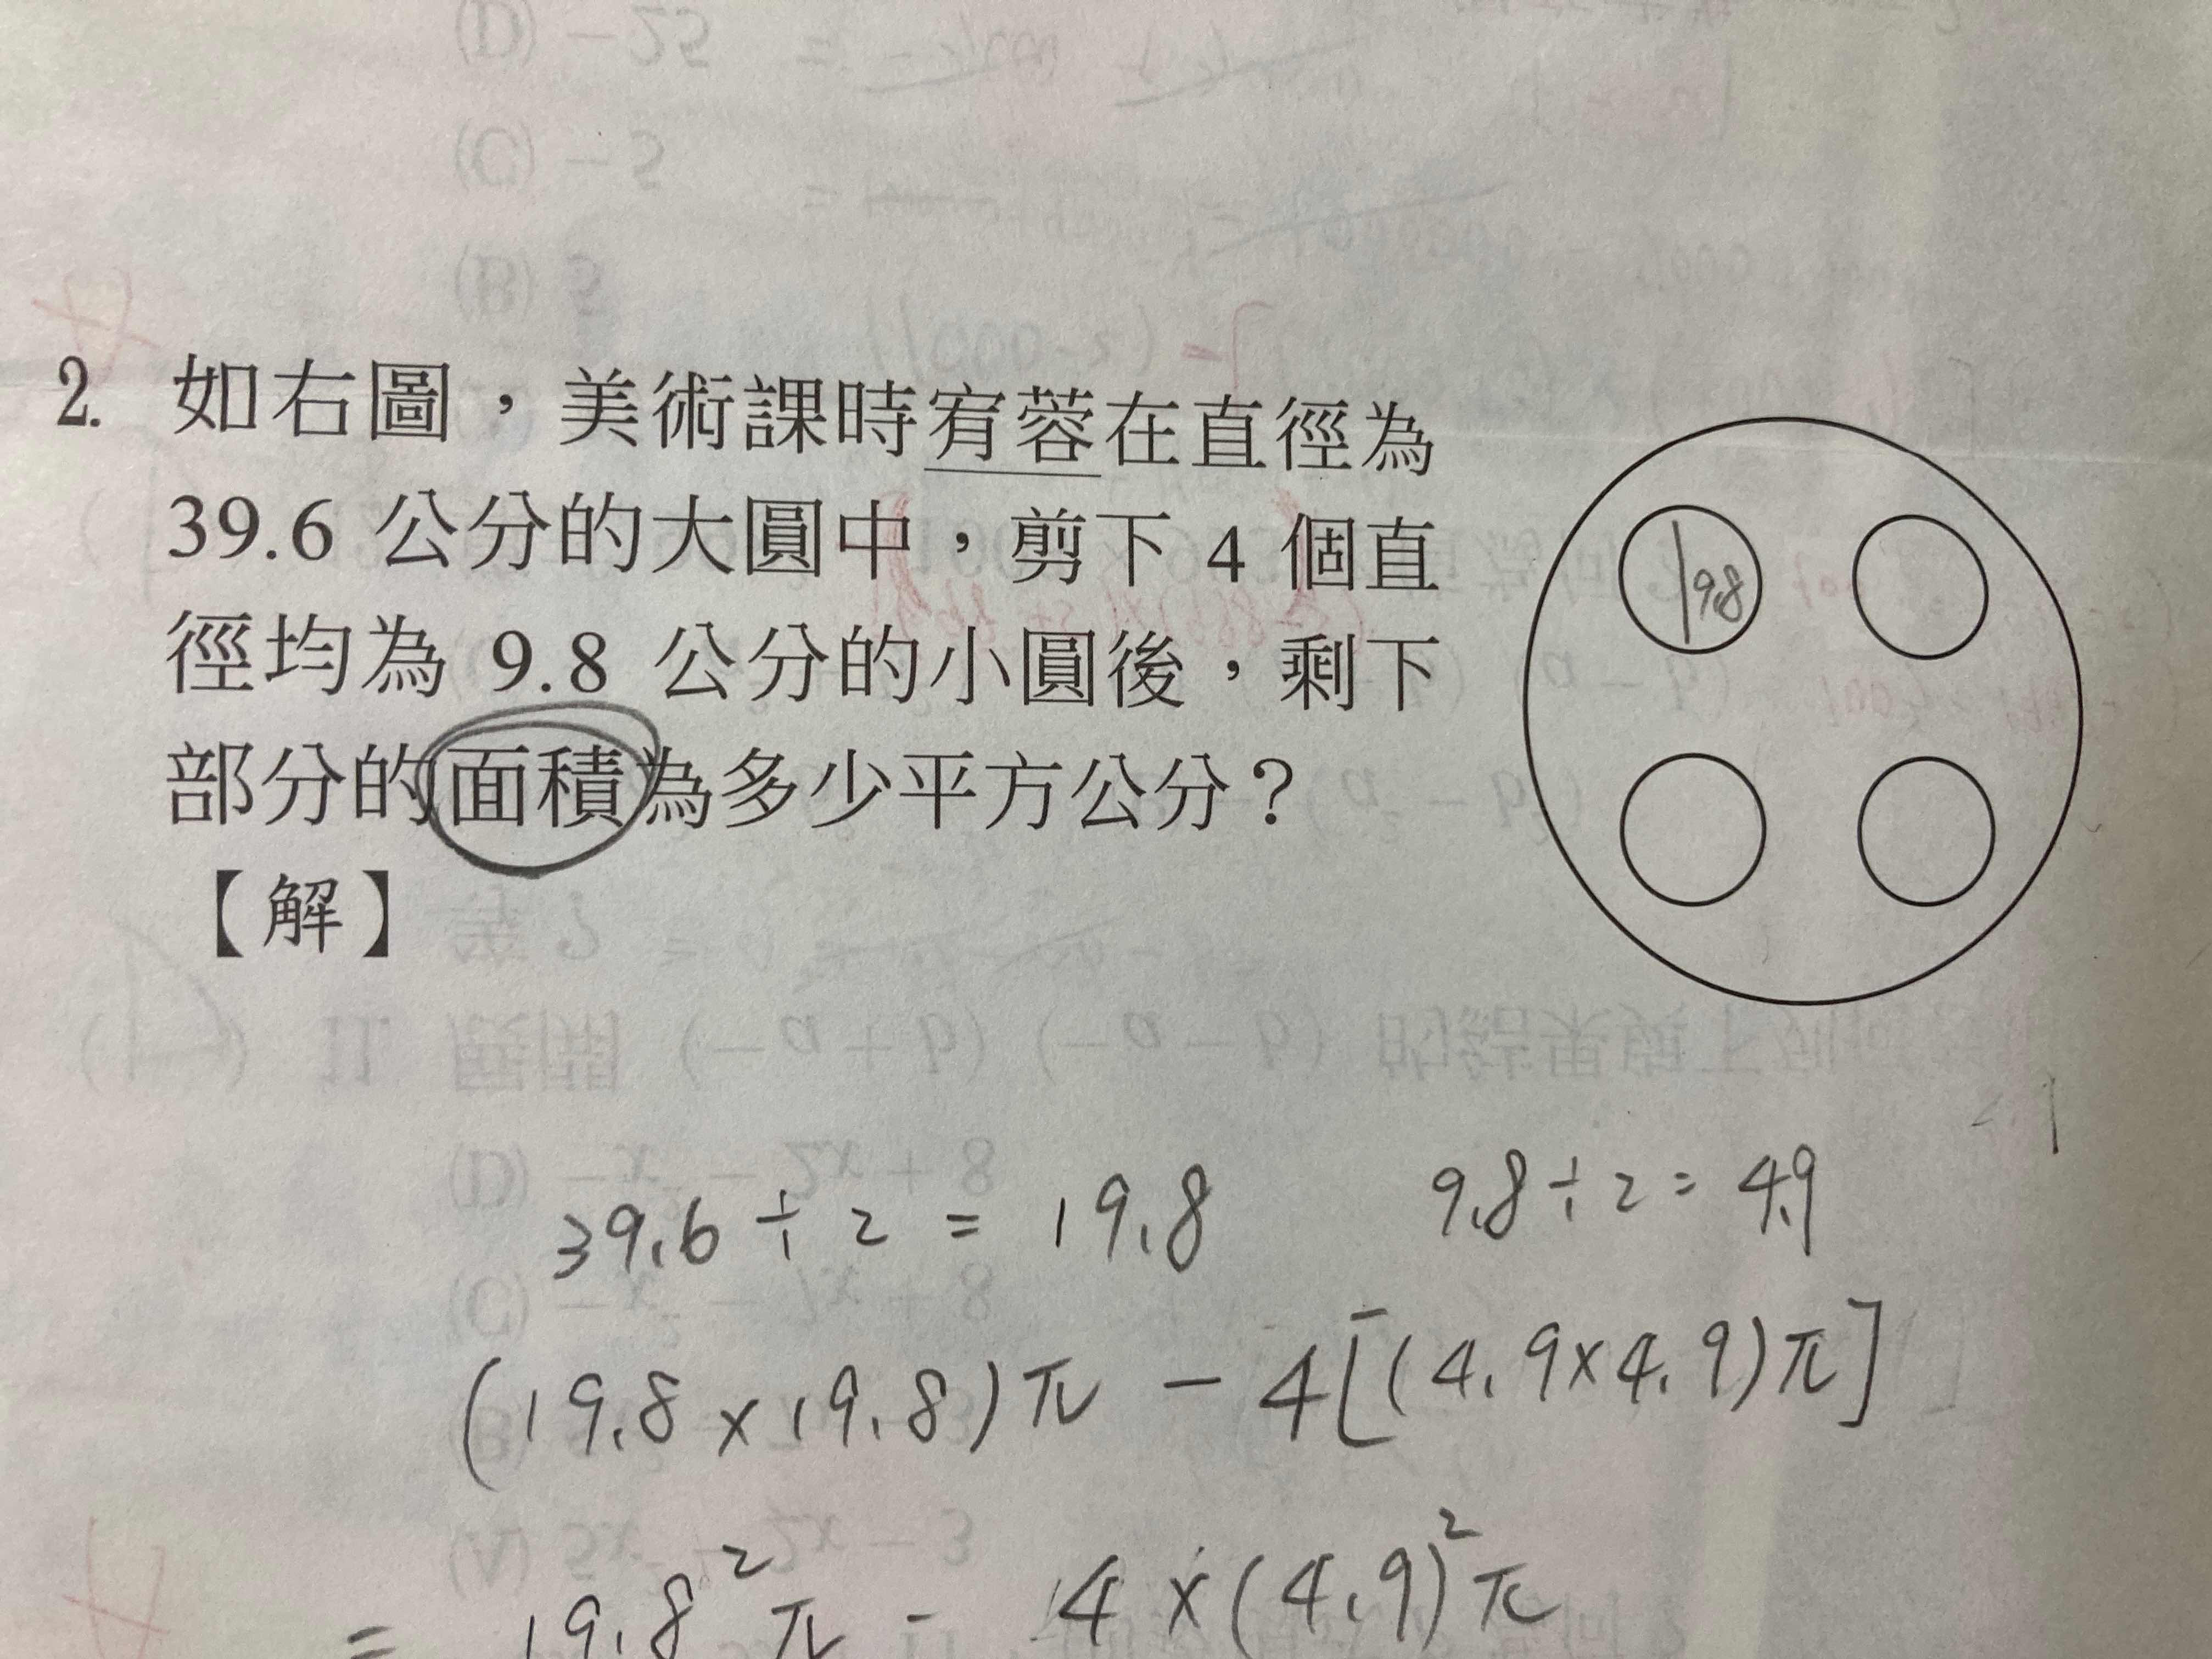 2. 如右圖，美術課時宥蓉在直徑為
39.6 公分的大圓中，剪下 4 個直
徑均為 9.8 公分的小圓後，剩下
部分的面積為多少平方公分？
【解】
9.8
39.6÷2=19.8
9.8÷2=4.9
(19.8×19.8)π-4[(4.9×4.9)π]
=19.8²π-4×(4.9)²π